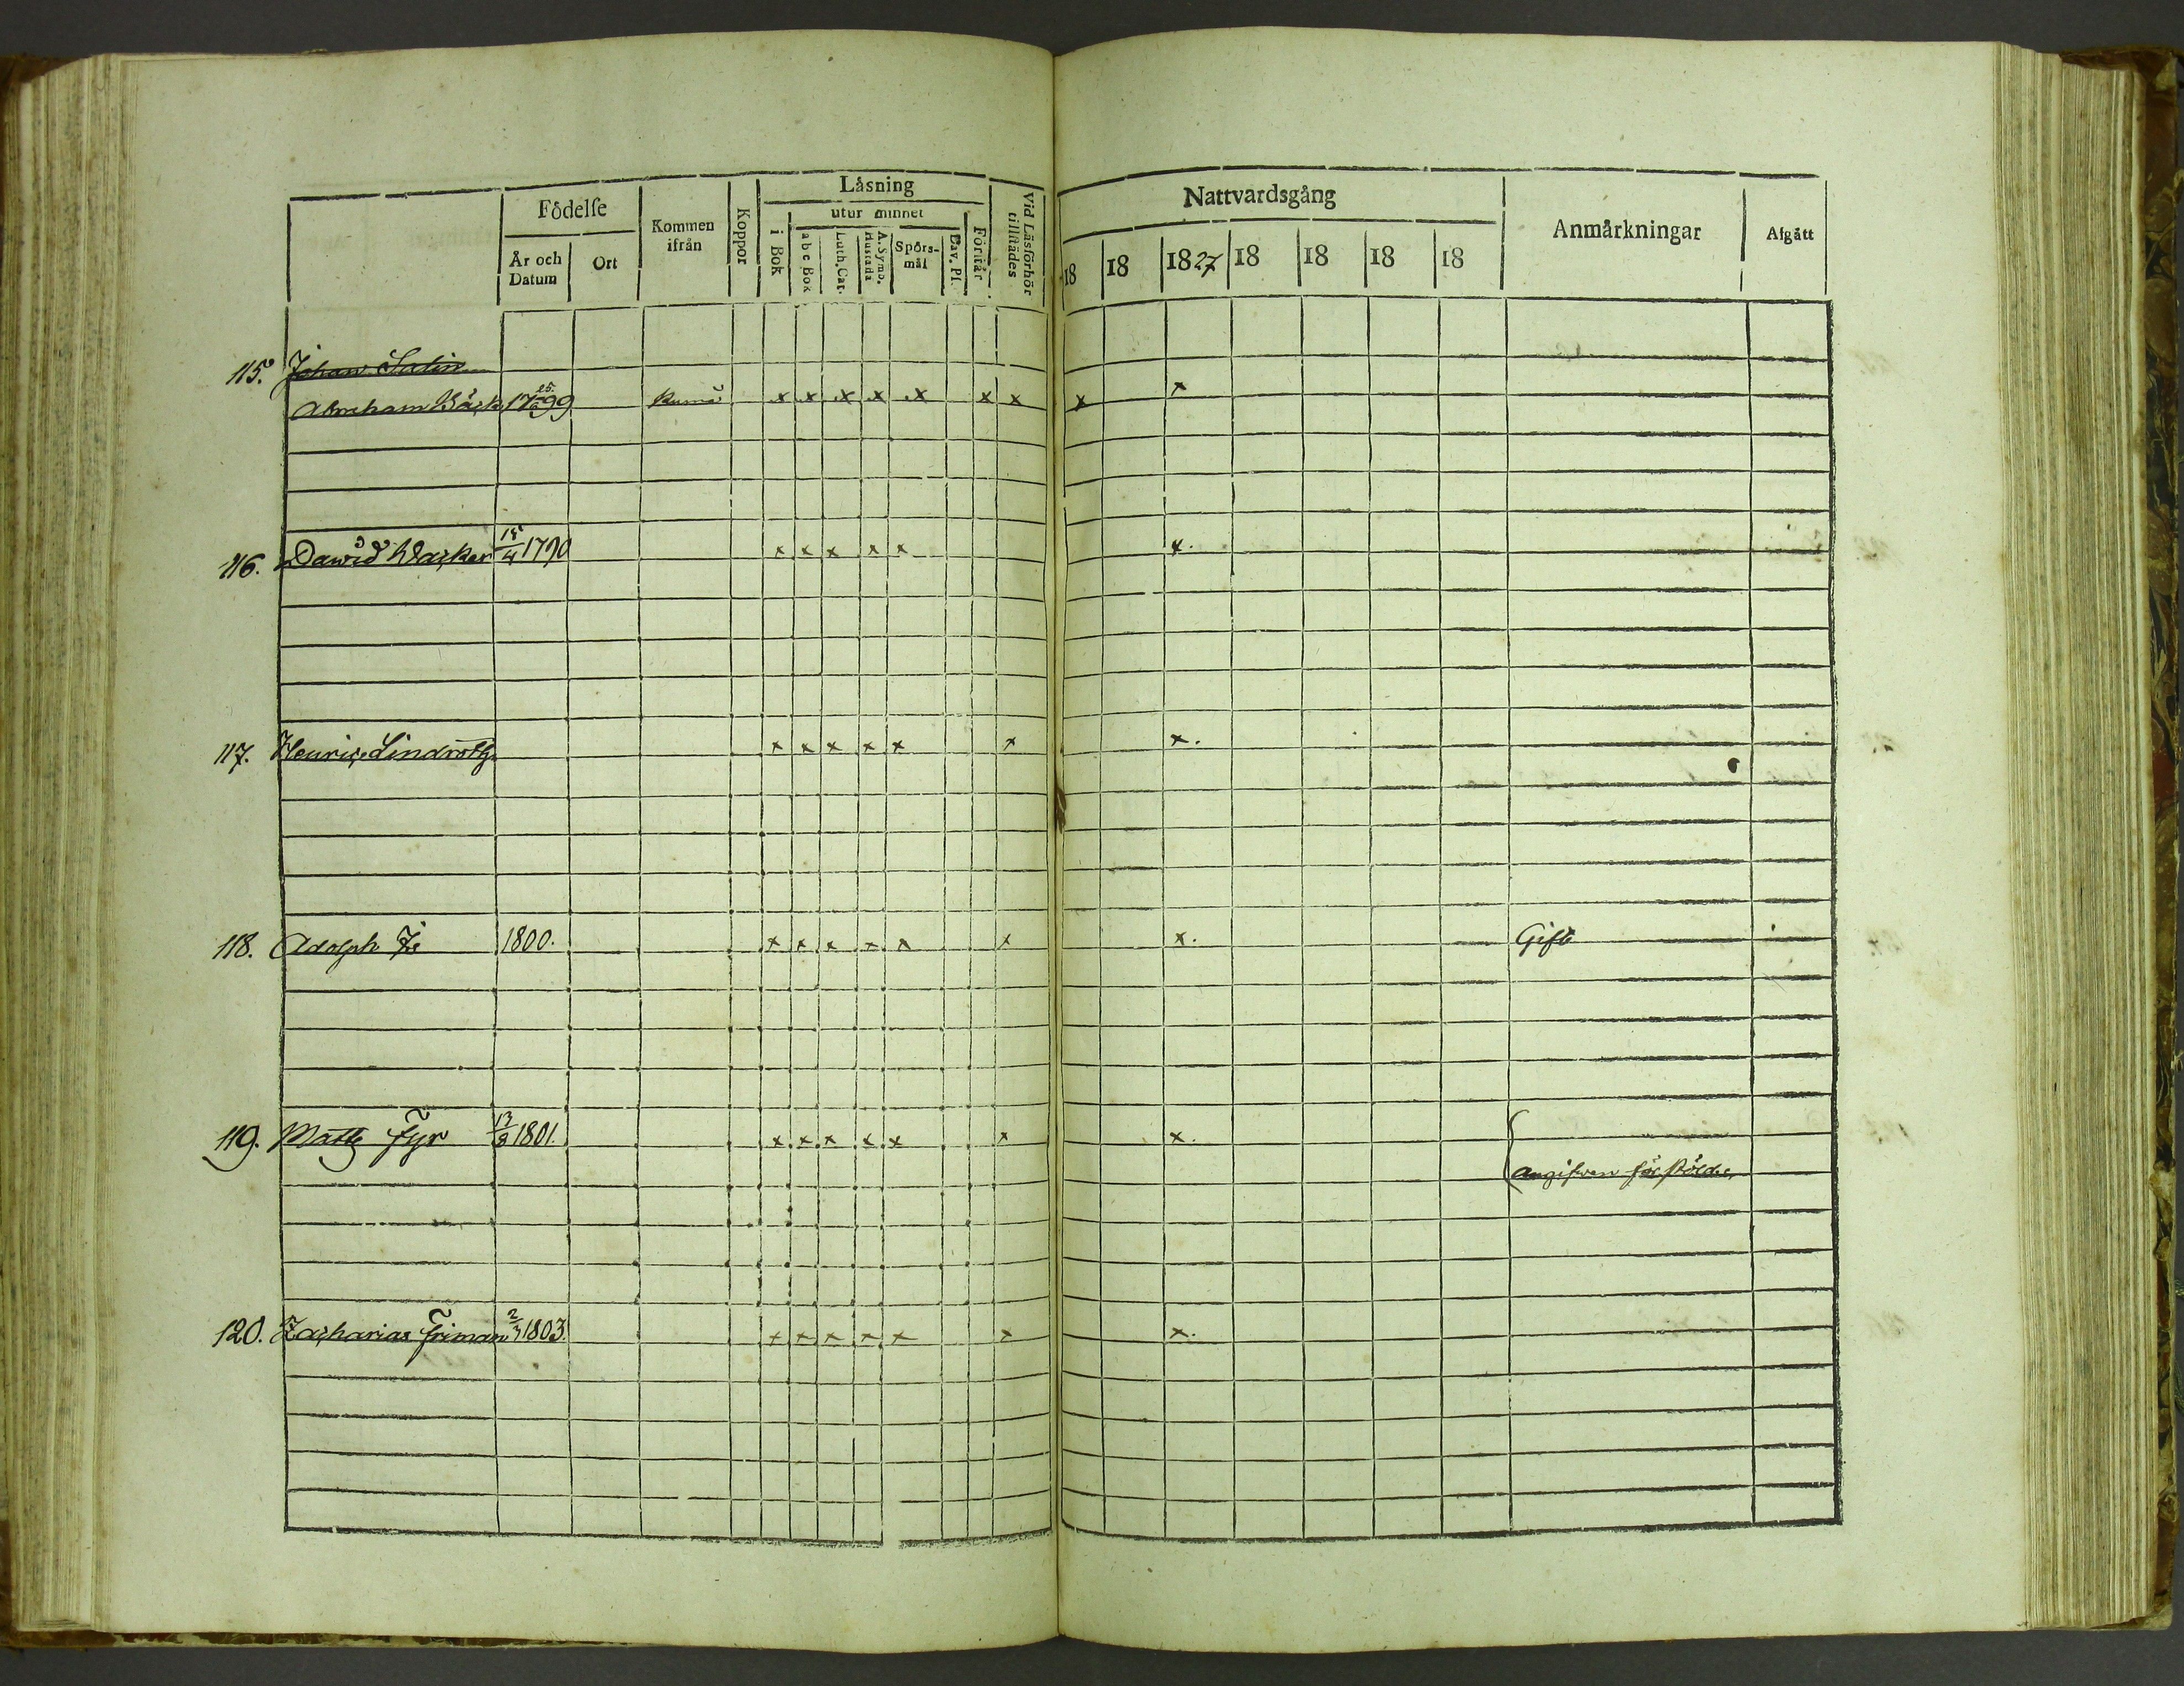 Födelse
År och Datum
Ort
Kommen ifrån
Koppor
Läsning
i Bok
utur minnet
abc Bok
Luth. Cat.
A. Symb. Hustafla
Spörsmål
Dav. Ps.
Förstår
Vid Läsförhör tillstädes
Nattvardsgång
18 18 1827 18 18 18 18
Anmärkningar
Afgått
115. Johan Salin
Abraham Bäck 1799 Kumå x x x x x x x x x
116. Dawid Wacker 15/4 1790 x x x x x x.
117. Henric Lindroth x x x x x x x.
118. Adolph 1800. x x x x x x x. Gift
119. Matts Fyr 1801. x x x x x x x.
angifwen för stöld
120. Zacharias Friman 1803. x x x x x x x.